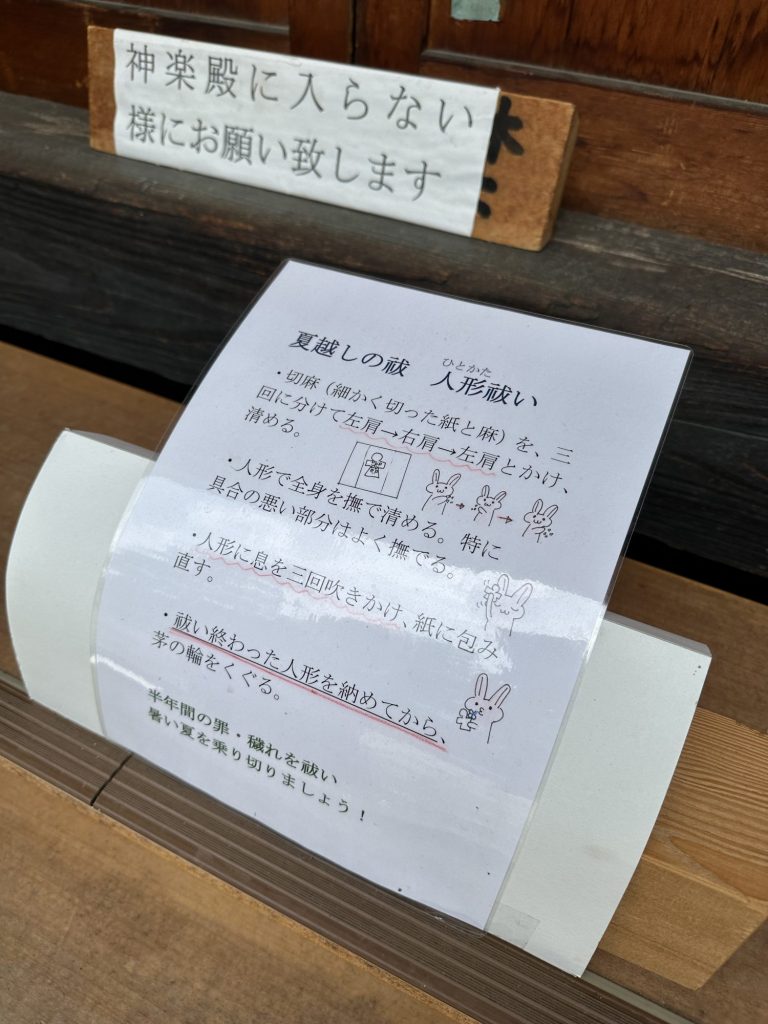 神楽殿に入らない
様にお願い致します
夏越しの祓 人形祓い
ひとかた
・切麻(細かく切った紙と麻)を、三
回に分けて左肩→右肩→左肩とかけ、
清める。
・人形で全身を撫で清める。特に
具合の悪い部分はよく撫でる。
・人形に息を三回吹きかけ、紙に包み
直す。
・祓い終わった人形を納めてから、
茅の輪をくぐる。
半年間の罪・穢れを祓い
暑い夏を乗り切りましょう!